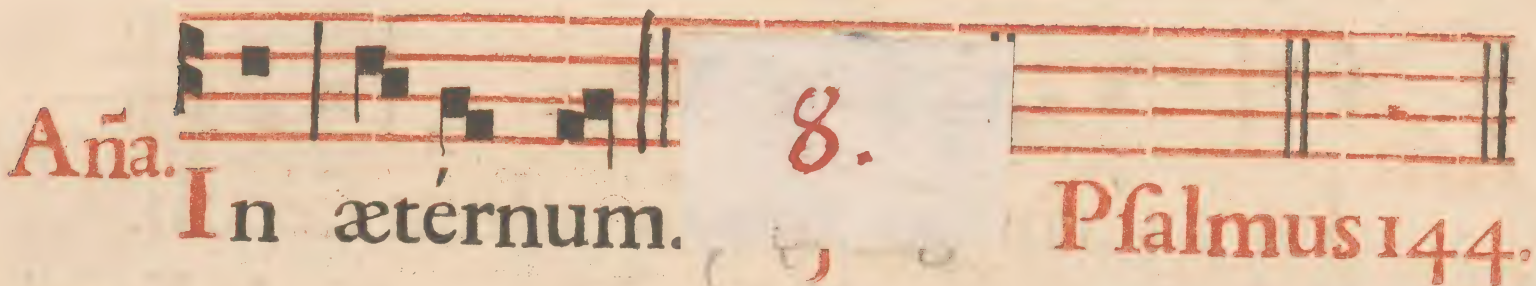 8.
Aña. In ætérnum. Pſalmus 144.